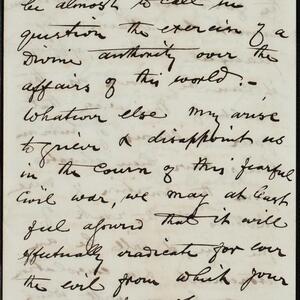 be almost to call in
question the exercise of a
Divine authority over the
affairs of this world. –
Whatever else may arise
to grieve & disappoint us
in the Course of this fearful
Civil war, we may at least
feel assured that it will
effectually eradicate for ever
the evil from which your